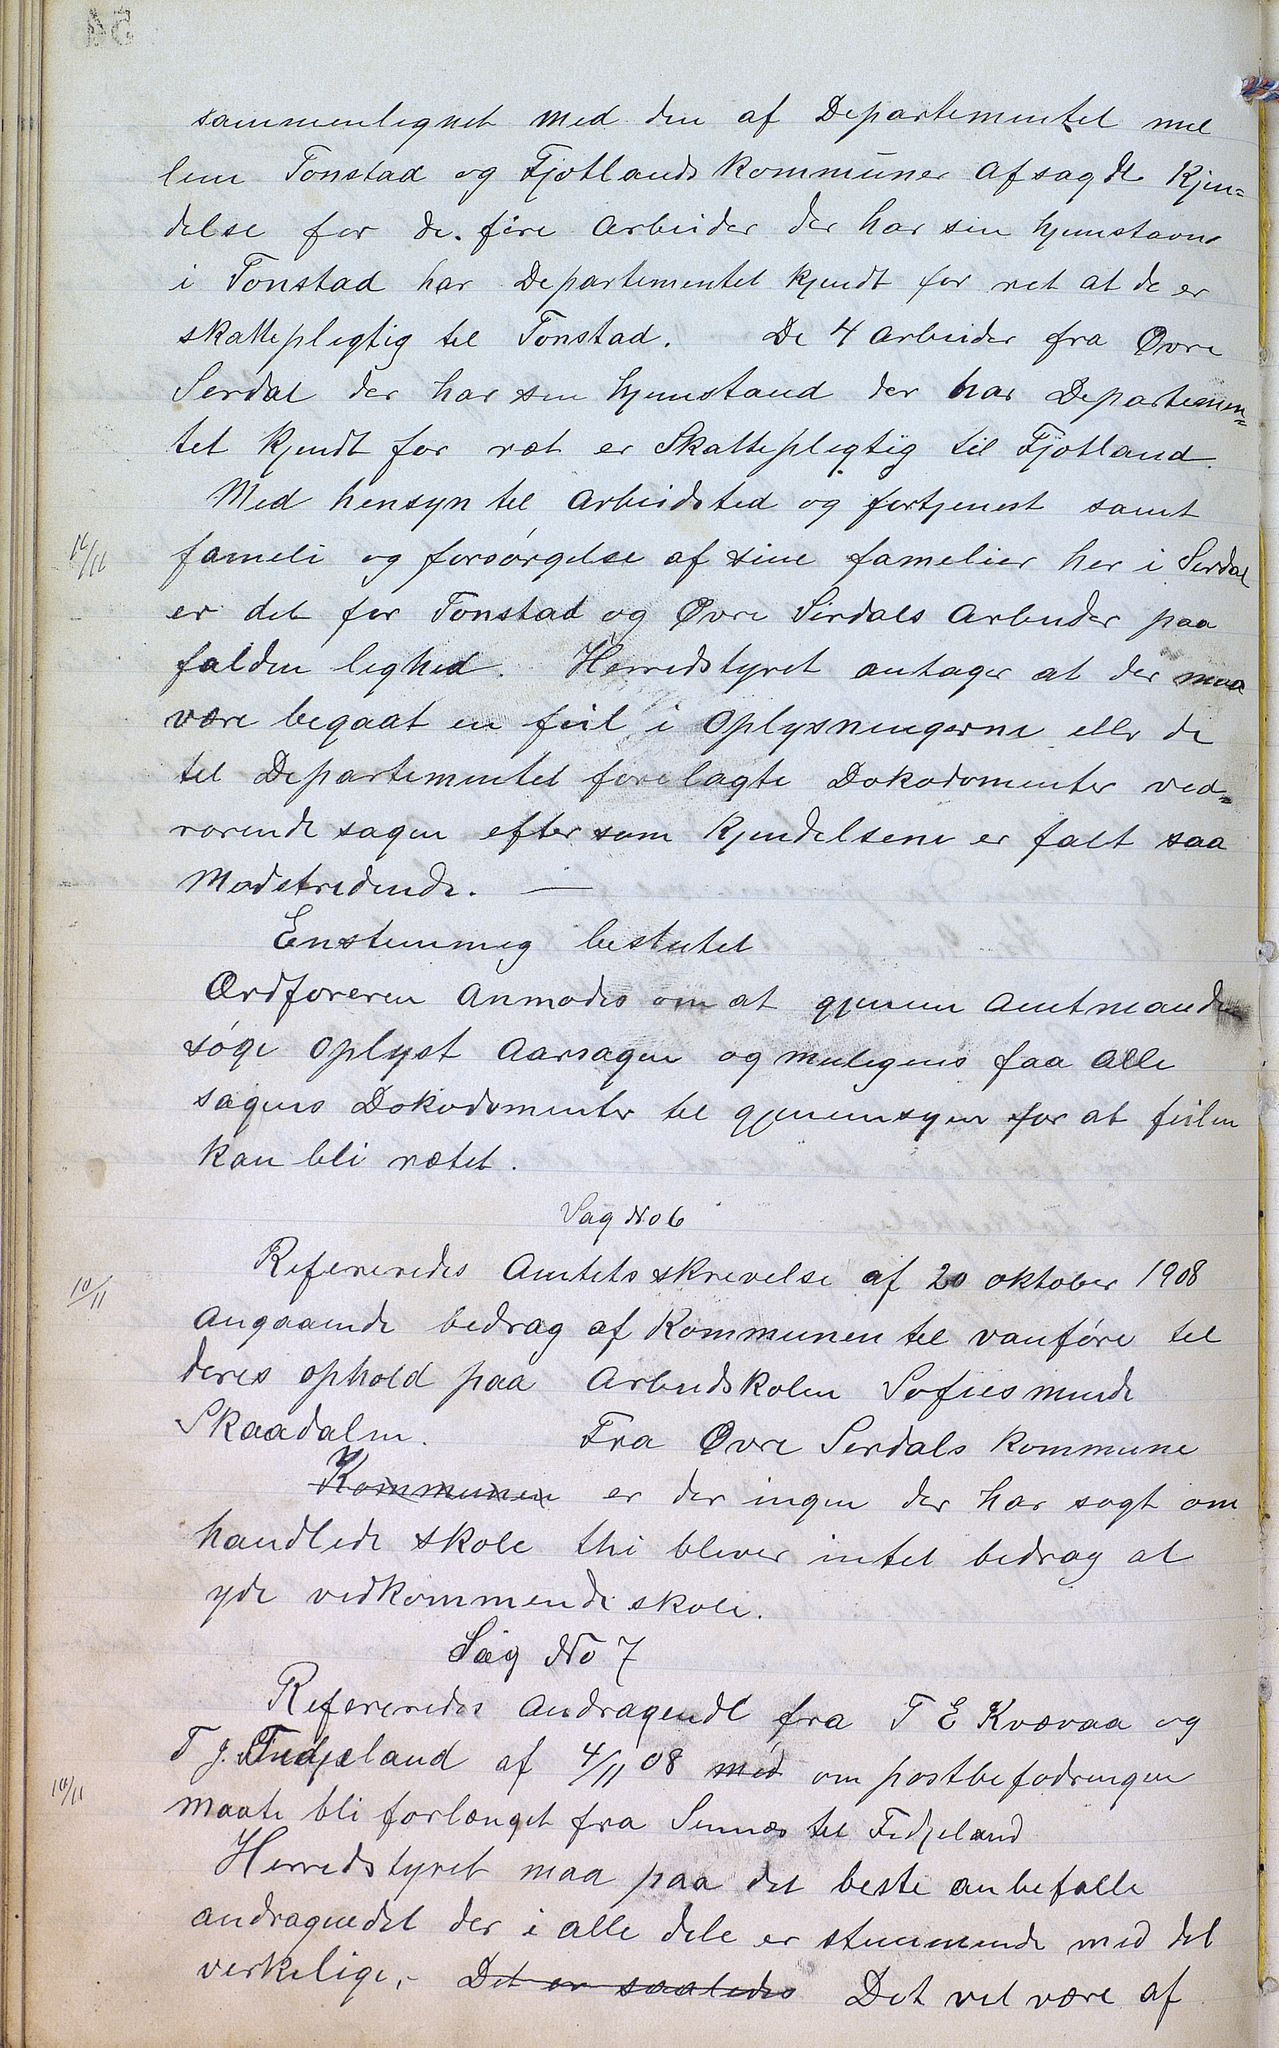 sammenlignet med den af Departementet mel
lem Tonstad og Fjotlands kommuner afsagdt Kjen=
delse for de fire Arbeider der har sin hjemstavn
i Tonstad har Departementet kjendt for ret at de er
skattepligtig til Tonstad. De 4 arbeider fra Øvre
Serdal der har sin hjemstand der har Departemen=
tet kjendt for ræt er Skattepligtig til Fjotland.
Med hensyn til arbeidsted og fortjenest samt
fameli og forsørgelse af sine famelier her i Serdal
er det for Tonstad og Øvre Sirdals Arbeider paa
falden lighed. Herredstyret antager at der maa
være begaat en feil i Oplysningerne eller de
til Departementet forelagte Dokodomenter ved=
rørende sagen eftersom Kjendelsene er falt saa
Modstridende. —
Enstemmig beslutet
Ordføreren Anmodes om at gjenem amtmanden
søge Oplyst Aarsagen og muligens faa Alle
sagens Dokodomenter til gjenemsyn for at feilen
kan bli rætet.
Sag No 6
10/11
Refereredes Amtets skrevelse af 20 oktober 1908
angaaende bedrag af Kommunen til vanføre til
deres ophold paa Arbeidskolen Sofiesminde
Skaadalen. Fra Øvre Serdals kommune
Kommunen er der ingen der har søgt om
handlede skole thi bliver intet bedrag at
yde vedkommende skole.
Sag No 7
Refereredes Andragende fra T E Kvævaa og
T J. Fidjeland af 4/11 08 med om postbefodringen
10/11
maate bli forlænget fra Sinnes til Fidjeland
Herredstyret maa paa det beste anbefalle
andragendet der i alle dele er stemmende med det
verkelige. – Det er saaledes Det vil være af